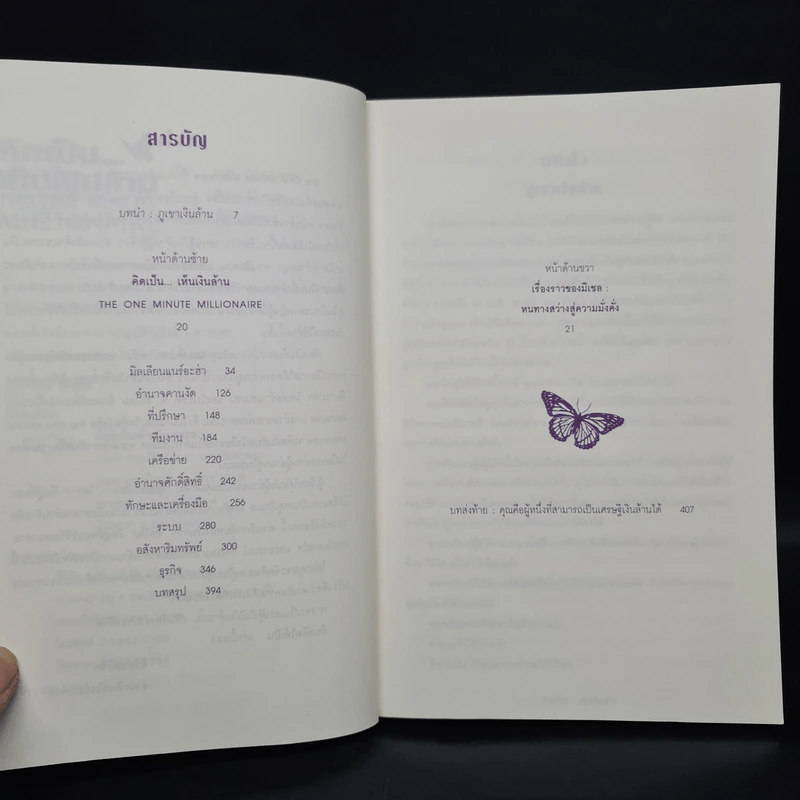 สารบัญ
บทนำ : ภูเขาเงินล้าน 7
หน้าด้านซ้าย
คิดเป็น... เห็นเงินล้าน
THE ONE MINUTE MILLIONAIRE
20
มิลเลียนแนร์อะฮ่า 34
อำนาจคานงัด 126
ที่ปรึกษา 148
ทีมงาน 184
เครือข่าย 220
อำนาจศักดิ์สิทธิ์ 242
ทักษะและเครื่องมือ 256
ระบบ 280
อสังหาริมทรัพย์ 300
ธุรกิจ 346
บทสรุป 394
หน้าด้านขวา
เรื่องราวของมิเชล :
หนทางสว่างสู่ความมั่งคั่ง
21
บทส่งท้าย : คุณคือผู้หนึ่งที่สามารถเป็นเศรษฐีเงินล้านได้ 407